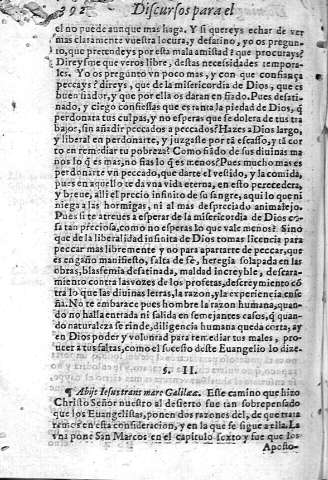 392 Discursos para el
el no puede aunque mas haga. Y si quereys echar de ver
mas claramente vuestra locura, y desatino, yo os pregun-
to, que pretendeys por esta mala amistad? que procurays?
Direysme que veros libre, destas necessidades tempora-
les. Yo os pregunto vn poco mas, y con que confiança
peccays? direys, que de la misericordia de Dios, que es
buen fiador, y que por ella os daran en fiado. Pues desati-
nado, y ciego confiessas que es tanta la piedad de Dios, q̃
perdonara tus culpas, y no esperas que se dolera de tu tra
bajor, sin añadir peccados a peccados? Hazes a Dios largo,
y liberal en perdonarte, y juzgasle por tã escasso, y tã cor
to en remediar tu pobreza? Como fiado de sus diuinas ma
nos lo q̃ es mas, no fias lo q̃ es menos? Pues mucho mas es
perdonarte vn peccado, que darte el vestido, y la comida,
pues en aquello te da vna vida eterna, en esto perecedera,
y breue, alli el precio infinito de su sangre, aqui lo que ni
niega a las hormigas, ni al mas despreciado animalejo.
Pues si te atreues a esperar de la misericordia de Dios co-
sa tan preciosa, como no esperas lo que vale menos? Sino
que de la liberalidad infinita de Dios tomas licencia para
peccar mas libremente y no para apartarte de peccar, que
es engaño manifiesto, falta de fè, heregia solapada en las
obras, blasfemia desatinada, maldad increyble, descara-
miento contra las vozes de los profetas, descreymiento cõ
tra lo que las diuinas letras, la razon, y la experiencia ense
ña. No te embarace pues hombre la razon humana, quan-
do no halla entrada ni salida en semejantes casos, q̃ quan-
do naturaleza se rinde, diligencia humana queda corta, ay
en Dios poder y voluntad para remediar tus males, pro-
uecar a tus faltas, como el sucesso deste Euangelio lo dize.
§. II.
¶ Abijt Iesus trans mare Galilææ. Este camino que hizo
Christo Señor nuestro al desierto fue tan sobrepensado
que los Euangelistas, ponen dos razones del, de que trata
ramos en esta consideracion, y en la que se sigue a ella. La
vna pone San Marcos en el capitulo sexto y fue que los
Aposto-